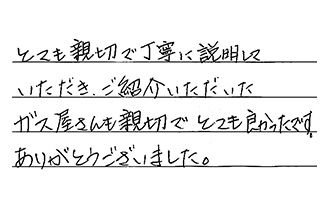 とても親切で丁寧に説明して
いただき、ご紹介いただいた
ガス屋さんも親切でとても良かったです。
ありがとうございました。